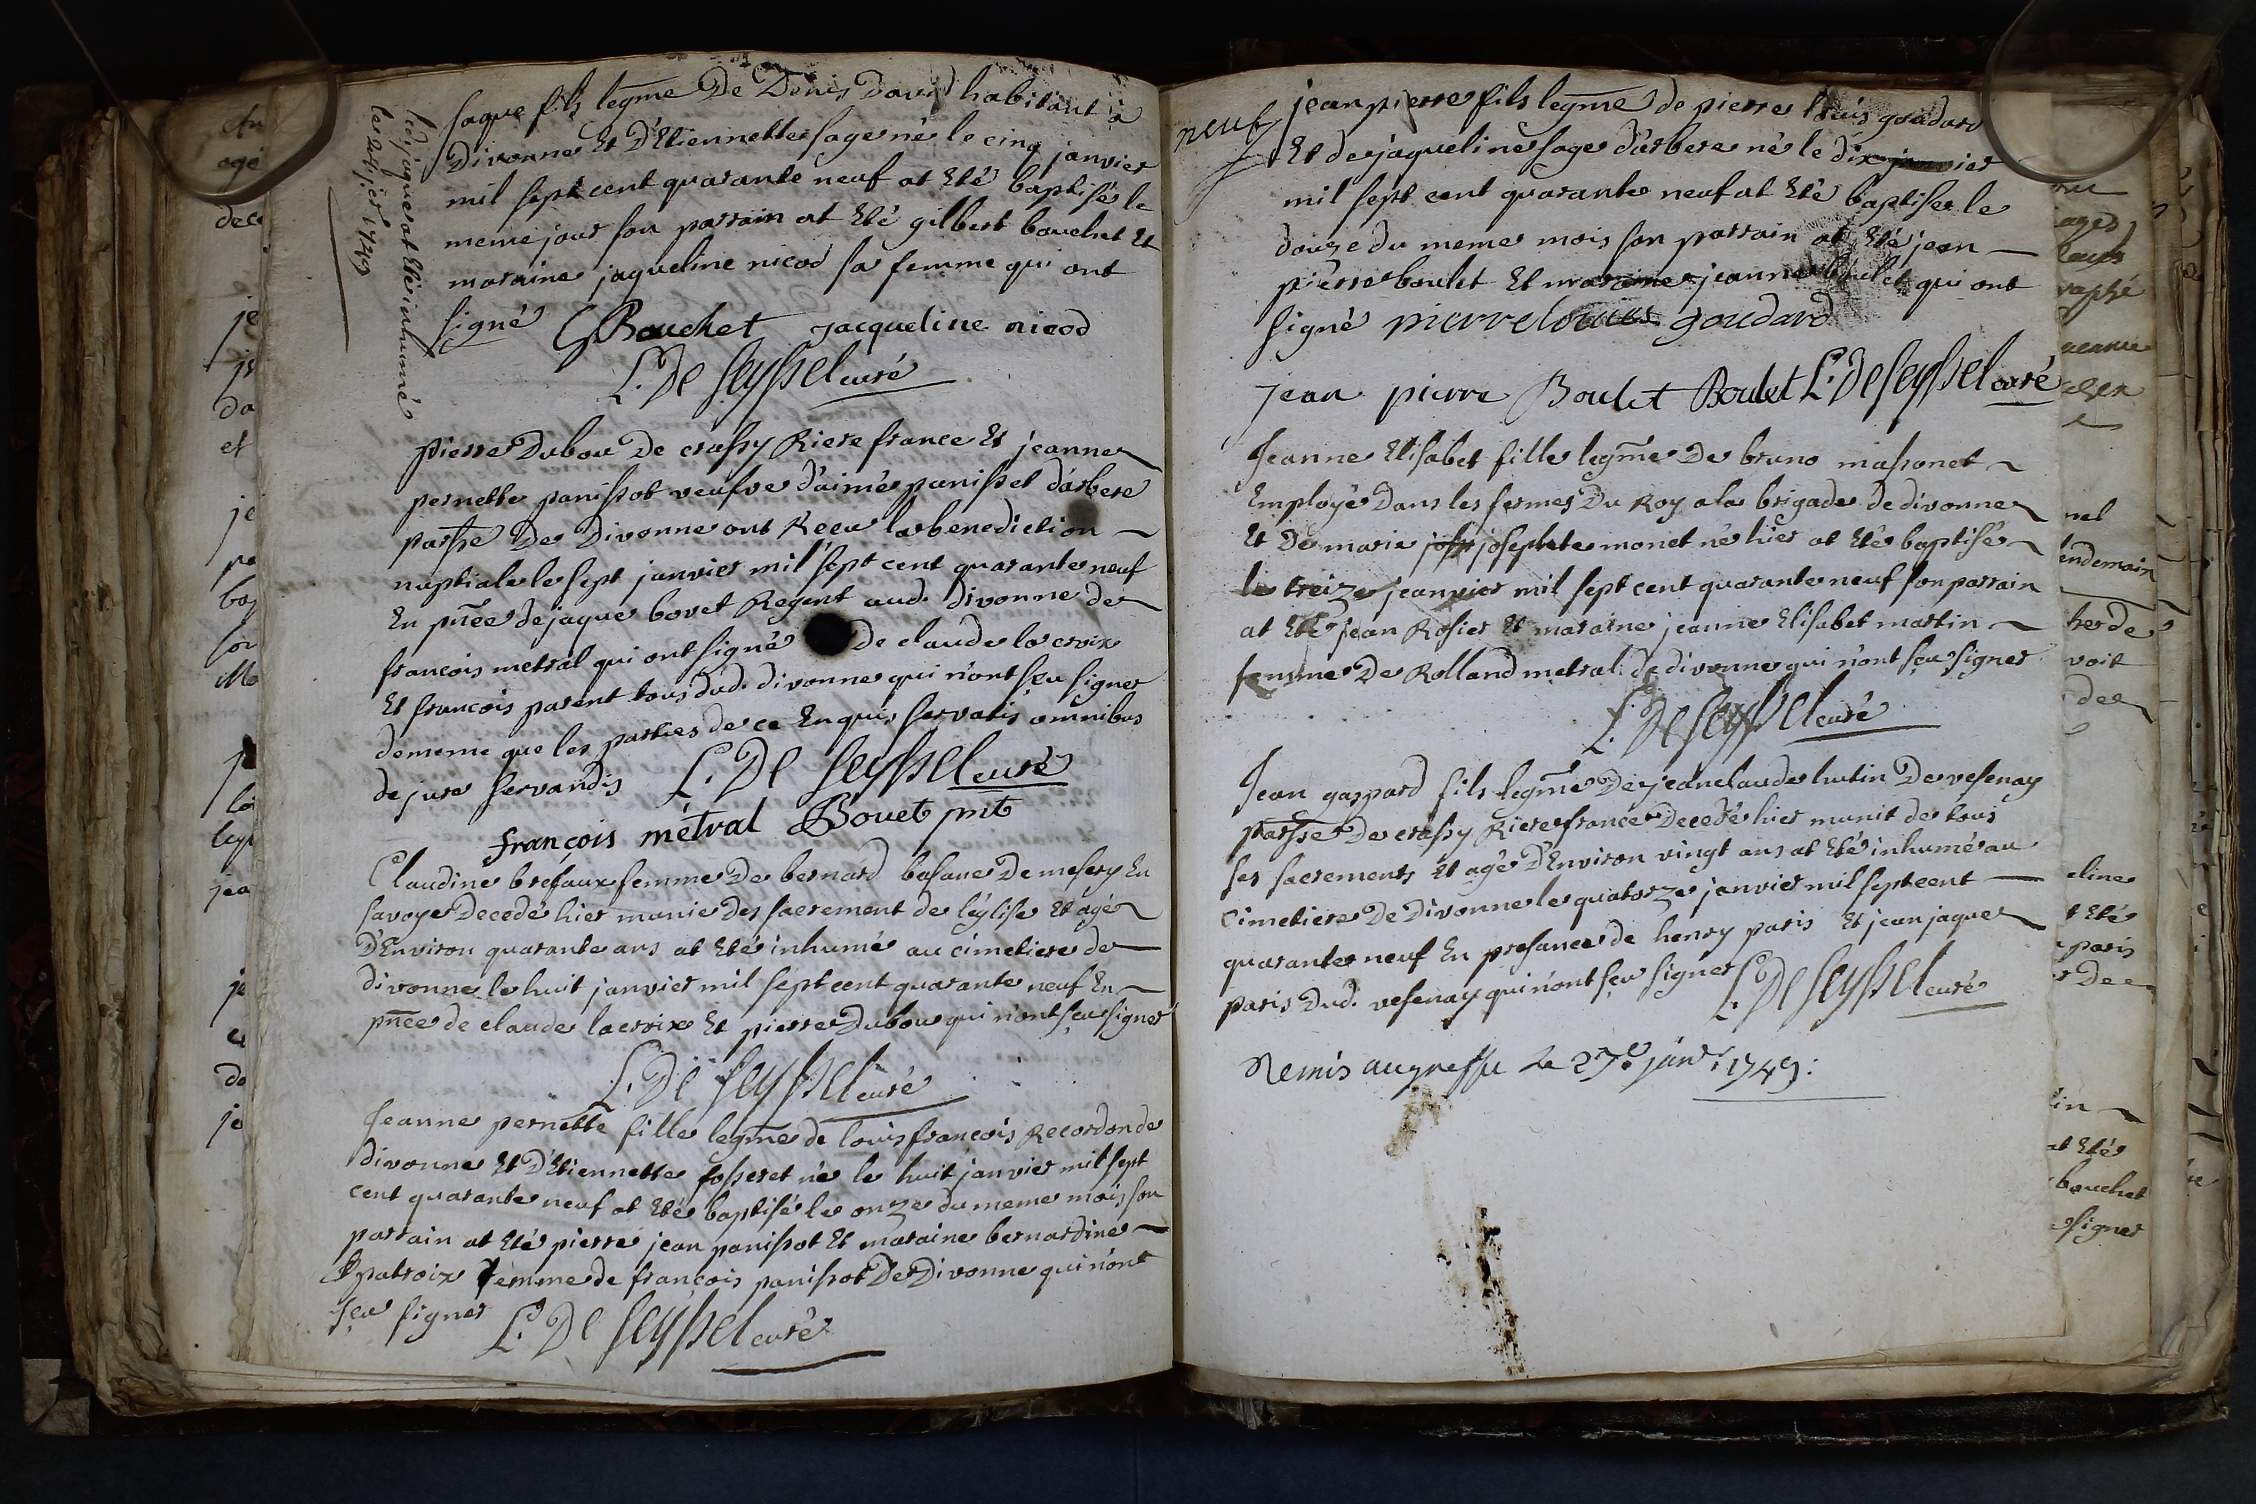 led. jaque at Eté inhumé
le 24 fier 1749
jaque fils legme De Denis David habitant à
Divonne Et D'Etiennette sage né le cinq janvier
mil sept cent quarante neuf at Eté baptisé le
meme jour son parrain at Eté gilbert bouchet Et
maraine jaqueline nicod sa femme qui ont
signé GBouchet jacqueline nicod
L. De Seyssel curé
pierre Dubou De crassy Riere france Et jeanne
pernette panissot veufve d'aimé panisset d'arbere
parsse De Divonne ont Receu la benediction
nuptiale le sept janvier mil sept cent quarante neuf
En pñce de jaque bovet Regent aud. divonne de
francois metral qui ont signé de claude la croix
Et francois parent tous dud. divonne qui n'ont sçu signer
de meme que les parties de ce Enquis servatis omnibus
de jure servandis L. De Seyssel curé
françois métral Bovet pnt
Claudine brefaux femme De bernard basane De mesery En
savoye Decedé hier munie des sacrement de léglise Et agé
D'Environ quarante ans at Eté inhumé au cimetiere de
divonne le huit janvier mil sept cent quarante neuf En
pñce de claude lacroix Et pierre Dubou qui n'ont sçu signer
L. De Seyssel curé
Jeanne pernette fille legme de louis francois Recordon de
divonne Et D'Etiennette fosseret né le huit janvier mil sept
cent quarante neuf at Eté baptisé le onze du meme mois son
parrain at Eté pierre jean panissot Et maraine bernardine
patroix femme de francois panissot De Divonne qui n'ont
sçu signer L. De Seyssel curé
neuf
jean pierre fils legme de pierre louis goudard
Et de jaqueline sage d'arbere né le dix janvier
mil sept cent quarante neuf at Eté baptisee le
douze du meme mois son parrain at Eté jean
pierre boulet Et maraine jeanne boulet qui ont
signé pierre louies goudard
jean pierre Boulet Boulet L. De Seyssel curé
Jeanne Elisabet fille legme De bruno massonet
Employé Dans les fermes Du Roy a la brigade de divonne
Et De marie josephte monet né hier at Eté baptisé
le treize jeanvier mil sept cent quarante neuf son parrain
at Eté jean Rosier Et maraine jeanne Elisabet martin
femme De Rolland metral de divonne qui n'ont sçu signer
L. De Seyssel curé
Jean gaspard fils legme De jean claude hutin De vesenay
parsse De crassy Riere france Decedé hier munit de tous
ses sacrements Et agé D'Environ vingt ans at Eté inhumé au
Cimetiere De Divonne le quatorze janvier mil sept cent
quarante neuf En presance de henry paris Et jean jaque
paris Dud. vesenay qui n'ont sçu signer L. De Seyssel curé
Remis au greffe le 27e janv. 1749: